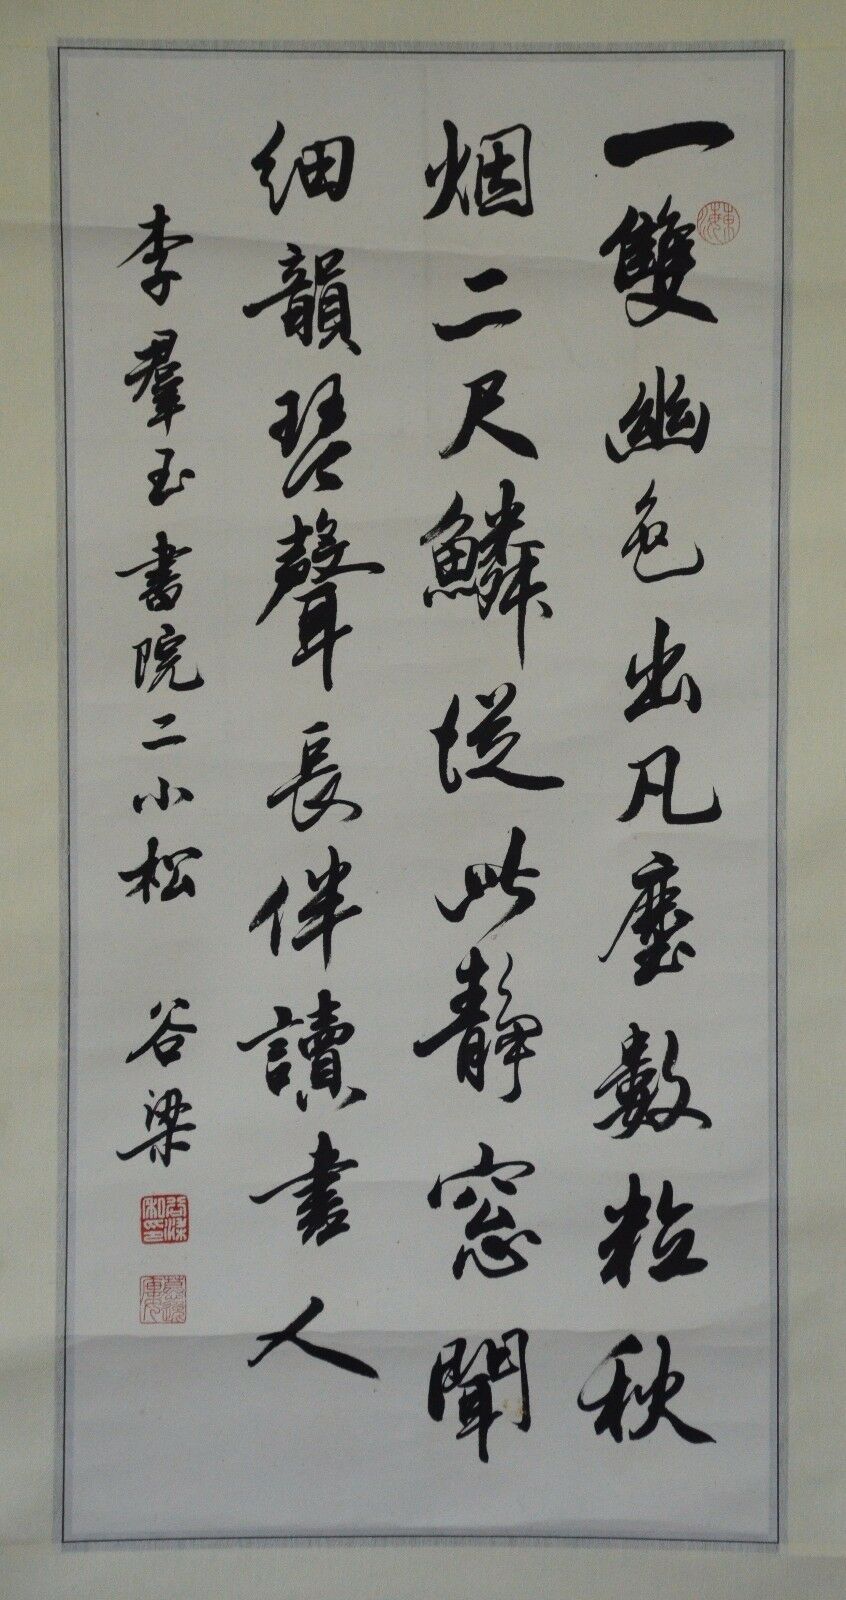 一雙幽色出凡塵數粒秋
烟二尺鱗從此靜窓聞
细韻琴聲長伴讀書人
李羣玉書院二小松 谷梁